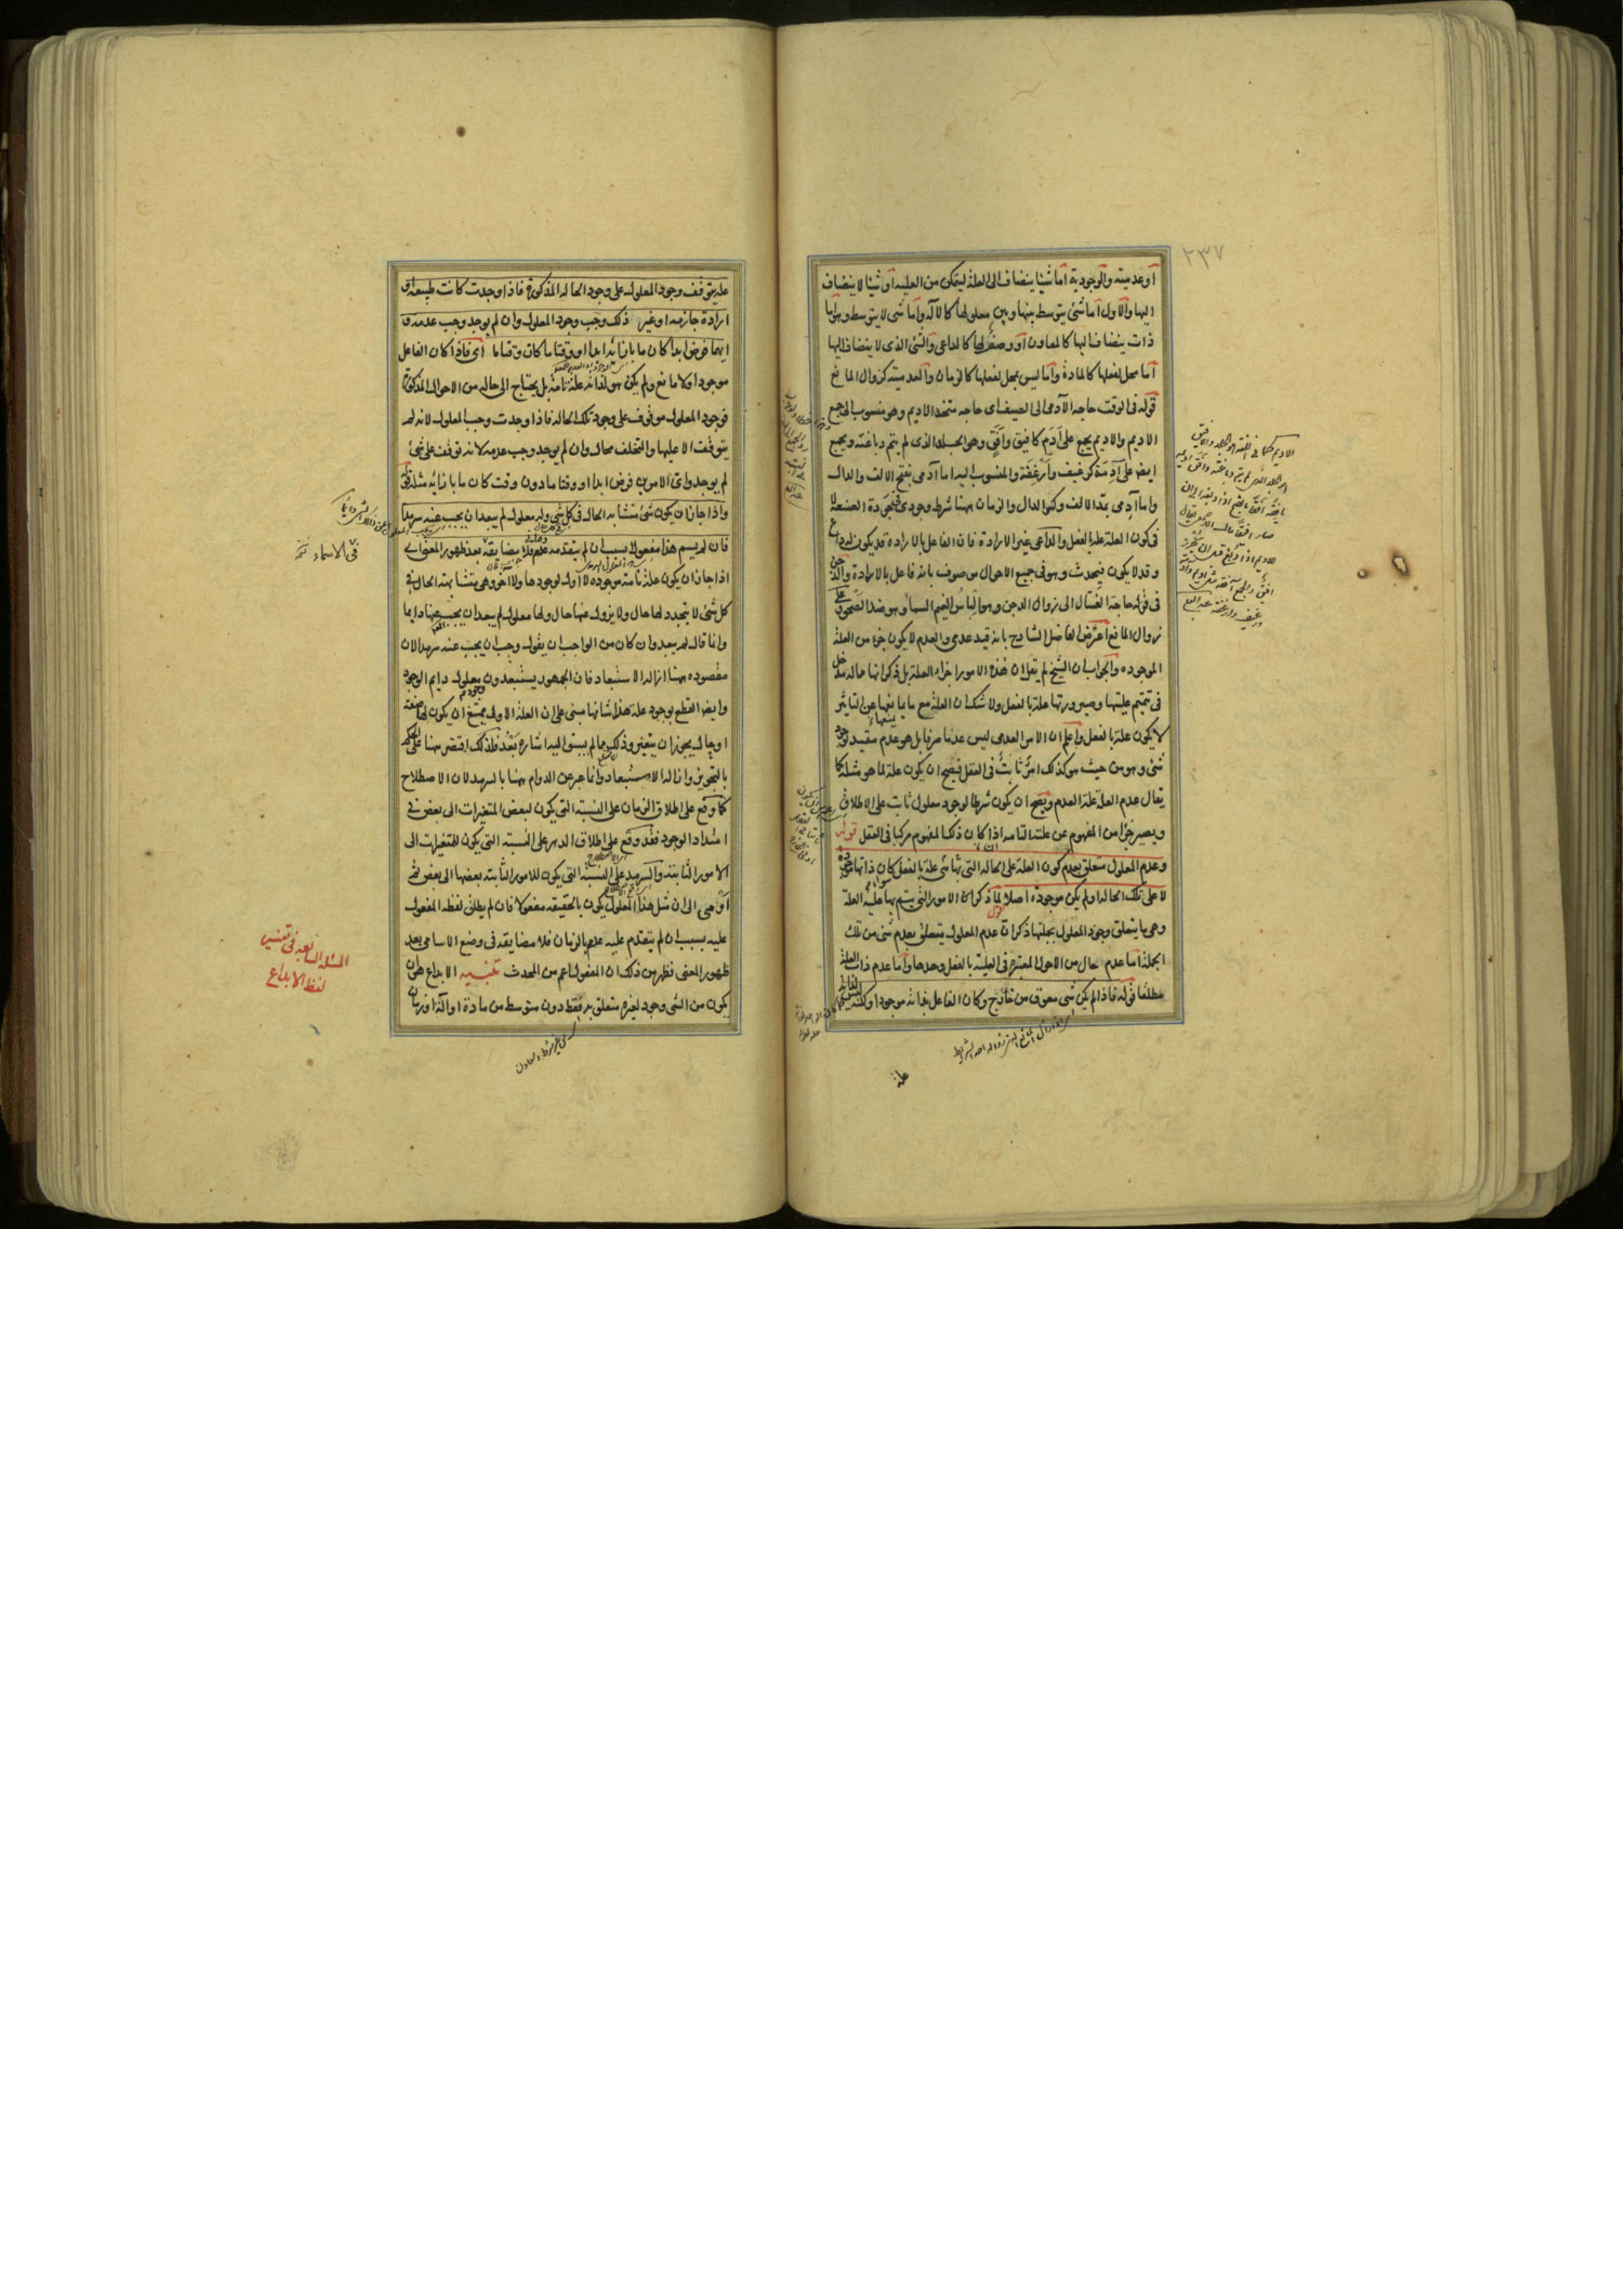 ٢٣٧
او عدميته والوجودية اما شيئا ينضاف الى العلة ليتمكن من العلية او شيئا لا ينضاف
اليها والاول اما شئ يتوسط بينها وبين معلولها كالآلة واما شئ لا يتوسط وهو اما
ذات ينضاف اليها كالمعاون او وصف لها كالداعى والشئ الذى لا ينضاف اليها
اما محل لفعلها كالمادة واما ليس بمحل لفعلها كالزمان والعدمية كزوال المانع
قوله فى الوقت حاجة الآدمى الى الصيف اى حاجة متخذ الاديم وهو منسوب الى جمع
الاديم والاديم يجمع على أدم كافيق وأفق وهو الجلد الذى لم يتم دباغته ويجمع
ايضا على آدمة كرغيف وأرغفة والمنسوب اليه اما أدمى بفتح الالف والدال
واما آدمى بمد الالف وكسر الدال والزمان ههنا شرط وجودى فى جودة الصنعة لا
فى كون العلة علة بالفعل والداعى غير الارادة فان الفاعل بالارادة قد يكون له داع
وقد لا يكون فيحدث وهو فى جميع الاحوال موصوف بانه فاعل بالارادة والدجن
فى قوله حاجة الغسال الى زوال الدجن وهو الباس الغيم السماء وهو ضد الصحو
زوال المانع اعترض الفاضل الشارح بانه قيد عدمى والعدم لا يكون جزء من العلة
الموجودة والجواب ان الشيخ لم يقل ان هذه الامور اجزاء العلة بل ذكر انها حالة مدخل
فى تتميم عليتها وصيرورتها علة بالفعل ولا شك ان العلة مع ما يمانعها عن التاثير
لا يكون علة بالفعل واعلم ان الامر العدمى ليس عدما صرفا بل هو عدم مقيد بوجود
شئ وهو من حيث هو كذلك امر ثابت فى العقل فيصح ان يكون علة لما هو مثله كما
يقال عدم العلة علة العدم ويصح ان يكون شرطا لوجود معلول ثابت على الاطلاق
ويصير جزءا من المفهوم عن علته التامة اذا كان ذلك المفهوم مركبا فى العقل قوله
وعدم المعلول متعلق بعدم كون العلة على الحالة التى بها هى علة بالفعل كان ذاتها موجودة
لا على تلك الحالة او لم يكن موجودة اصلا لما ذكر ان الامور التى يتم بها علية العلة
وهى ما يتعلق وجود المعلول بجملتها ذكر ان عدم المعلول يتعلق بعدم شئ من تلك
الجملة اما عدم حال من الاحوال المعتبرة فى العلية بالفعل وحدها واما عدم ذات العلة
مطلقا قوله فاذا لم يكن شئ معوق من خارج وكان الفاعل بذاته موجودا ولكنه
علة
عليه يتوقف وجود المعلول على وجود الحالة المذكورة فاذا وجدت كانت طبيعة او
ارادة جازمة او غير ذلك وجب وجود المعلول وان لم يوجد وجب عدمه و
ايهما فرض ابدا كان ما بازائه ابدا او وقتا ما كان وقتا ما اى فاذا كان الفاعل
موجودا ولا مانع ولم يكن هو لذاته علة تامة بل يحتاج الى حالة من الاحوال المذكورة
فوجود المعلول موقوف على وجود تلك الحالة فاذا وجدت وجب المعلول لانه لم
يتوقف الا عليها والتخلف محال وان لم يوجد وجب عدمه لانه توقف على شئ
لم يوجد واى الامرين فرض ابدا او وقتا ما دون وقت كان ما بازائه مثله
واذا جاز ان يكون شئ متشابه الحال فى كل شئ وله معلول لم يبعد ان يجب عنه سرمدا
فان لم يسم هذا مفعولا بسبب ان لم يتقدمه عدم فلا مضايقة بعد ظهور المعنى اى
اذا جاز ان يكون علة تامة موجودة لا اول لوجودها ولا آخر وهى متشابهة الحال فى
كل شئ لا يتجدد لها حال ولا يزول عنها حال ولها معلول لم يبعد ان يجب عنها دايما
وانما قال لم يبعد وان كان من الواجب ان يقول وجب ان يجب عنه سرمدا لان
مقصوده ههنا ازالة الاستبعاد فان الجمهور يستبعدون معلول دايم الوجود
وايضا القطع بوجود علة هذا شانها مبنى على ان العلة الاولى يمتنع ان يكون لها صفة
او حال يجوز ان يتغير وذلك مما لم يسبق اليه اشارة بعد فلذلك اقتصر ههنا على الحكم
بالتجويز وازالة الاستبعاد وانما عبر عن الدوام ههنا بالسرمد لان الاصطلاح
كما وقع على اطلاق الزمان على النسبة التى يكون لبعض المتغيرات الى بعض فى
امتداد الوجود فقد وقع على اطلاق الدهر على النسبة التى يكون للمتغيرات الى
الامور الثابتة والسرمد على النسبة التى يكون للامور الثابتة بعضها الى بعض ثم
اومى الى ان مثل هذا المعلول يكون بالحقيقة مفعولا فان لم يطلق لفظ المفعول
عليه بسبب ان لم يتقدم عليه عدم بالزمان فلا مضايقة فى وضع الاسامى بعد
ظهور المعنى فظهر من ذلك ان المفعول اعم من المحدث تنبيه الابداع هو ان
يكون من الشئ وجود لغيره متعلق به فقط دون متوسط من مادة او آلة او زمان
فى الاسماء
المسئلة السابعة فى تفسير
لفظ الابداع